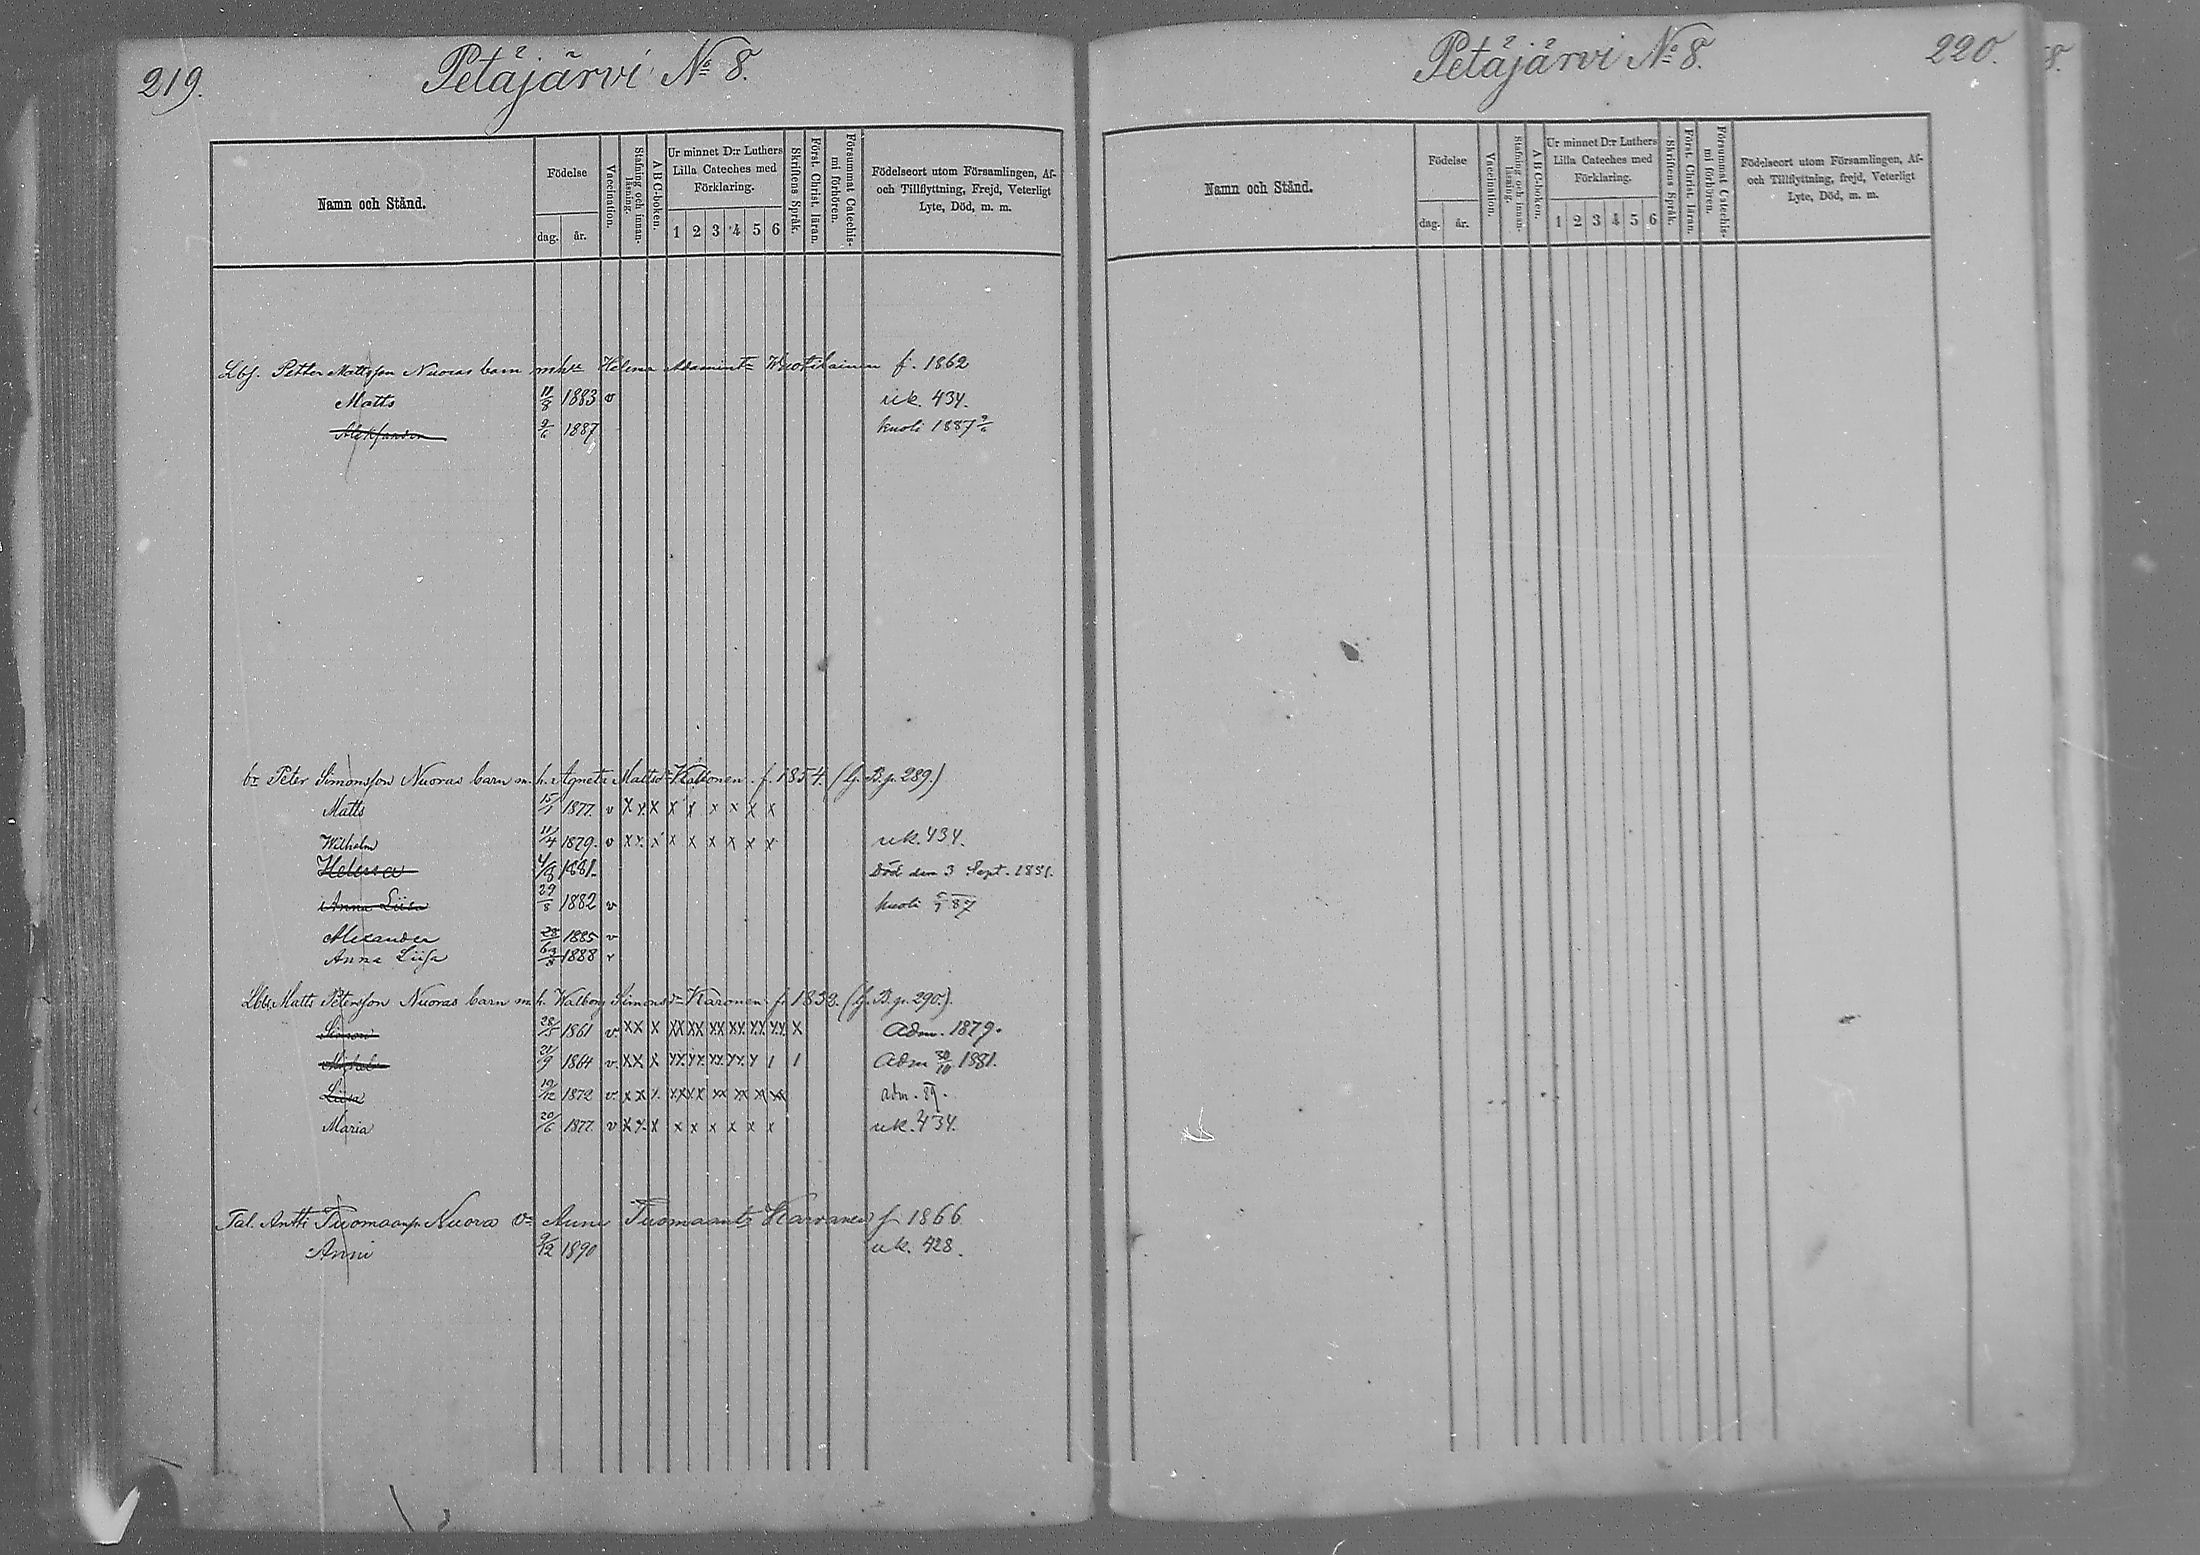 219.
Petäjärvi No 8.
Namn och Stånd.
Födelse
dag. år.
Vaccination.
Stafning och innanläsning.
A B C-boken.
Ur minnet D:r Luthers
Lilla Cateches med
Förklaring.
1 2 3 4 5 6
Skriftens Språk.
Först. Christ. läran.
Försummat Catechismi förhören.
Födelseort utom Församlingen, Af-
och Tillflyttning, Frejd, Veterligt
Lyte, Död, m. m.
Lbf. Petter Mattsson Nuoras barn Helena f. 1862
Matts 11/8 1883 v uk. 434.
Aleksander 2/6 1887 kuoli 1887
br Peter Simonsson Nuoras barn m. h. Agneta Mattsdr f. 1854. p. 289.)
Matts 15/1 1877. v x x x x x x x x x
Wilhelm 11/4 1879. v x x x x x x x x x uk. 434.
Helena 4/8 1881. Död den 3 Sept. 1881.
Anna Liisa 29/8 1882 v kuoli 87
Alexander 1885 v
Anna Liisa 1888 v
Matts Petersson Nuoras barn m. h. Walborg Simonsdr Karonen f. 1832. p. 290.)
Simon 28/5 1861 v. xx x xx xx xx xx xx xx x Adm. 1879.
21/9 1864 v. xx x xx xx xx xx x 1 1 Adm 30/10 1881.
Liisa 19/12 1872 v. x x x xx xx xx xx xx xx adm. 89.
Maria 20/6 1877. v x x x x x x x x x uk. 434.
Tal. Antti Tuomaanp. Nuora Anni Tuomaant. f 1866
Anni 9/12 1890 uk. 428.
Petäjärvi No 8.
220.
Namn och Stånd.
Födelse
dag. år.
Vaccination.
Stafning och innanläsning.
A B C-boken.
Ur minnet D:r Luthers
Lilla Cateches med
Förklaring.
1 2 3 4 5 6
Skriftens Språk.
Först. Christ. läran.
Försummat Catechismi förhören.
Födelseort utom Församlingen, Af-
och Tillflyttning, frejd, Veterligt
Lyte, Död, m. m.
8.